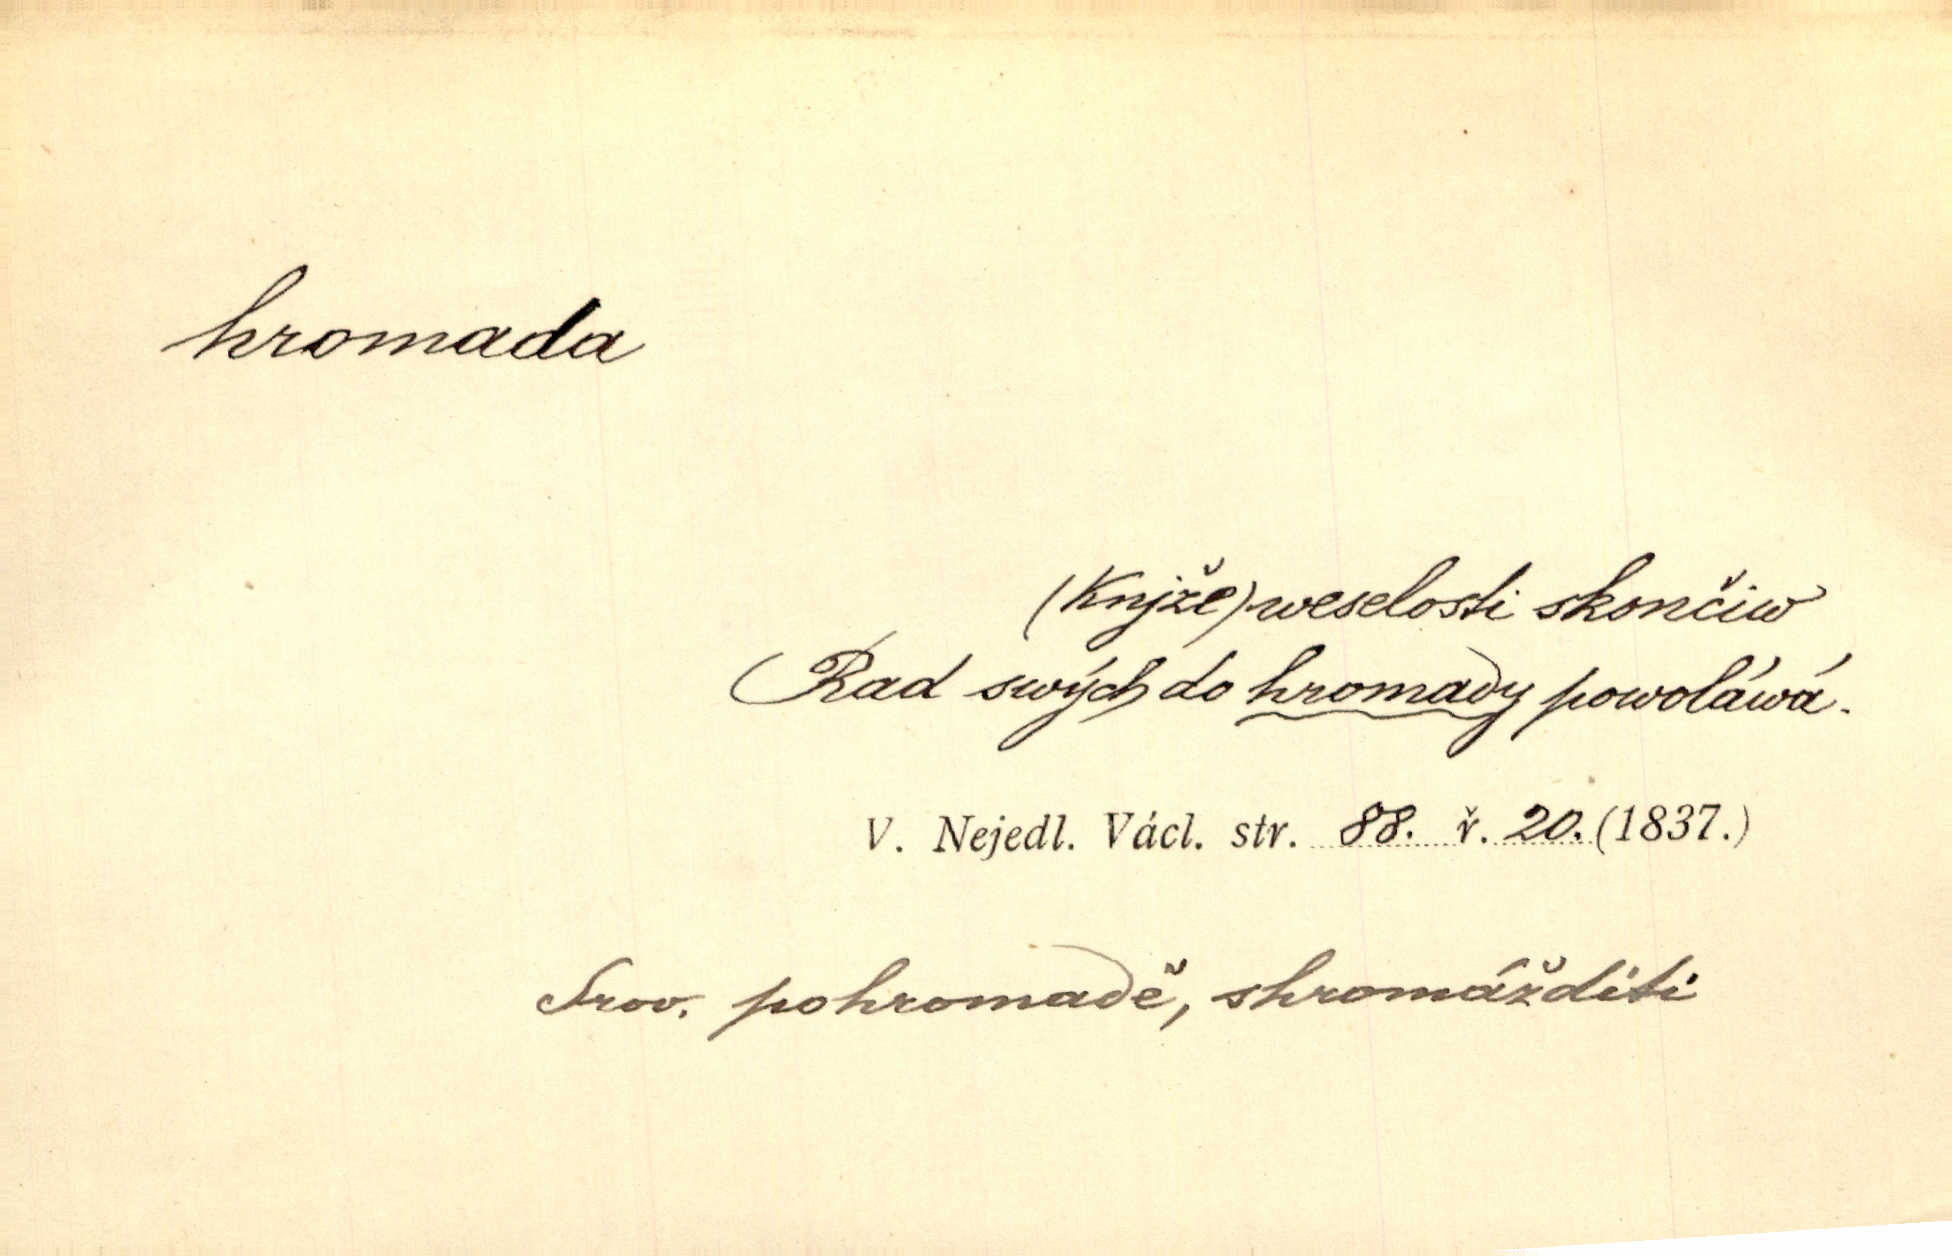 hromada
(Knjže) weselosti skončiw
Rad swých do hromady powoláwá.
V. Nejedl. Václ. str. 88. ř. 20. (1837.)
Srov. pohromadě, shromážditi